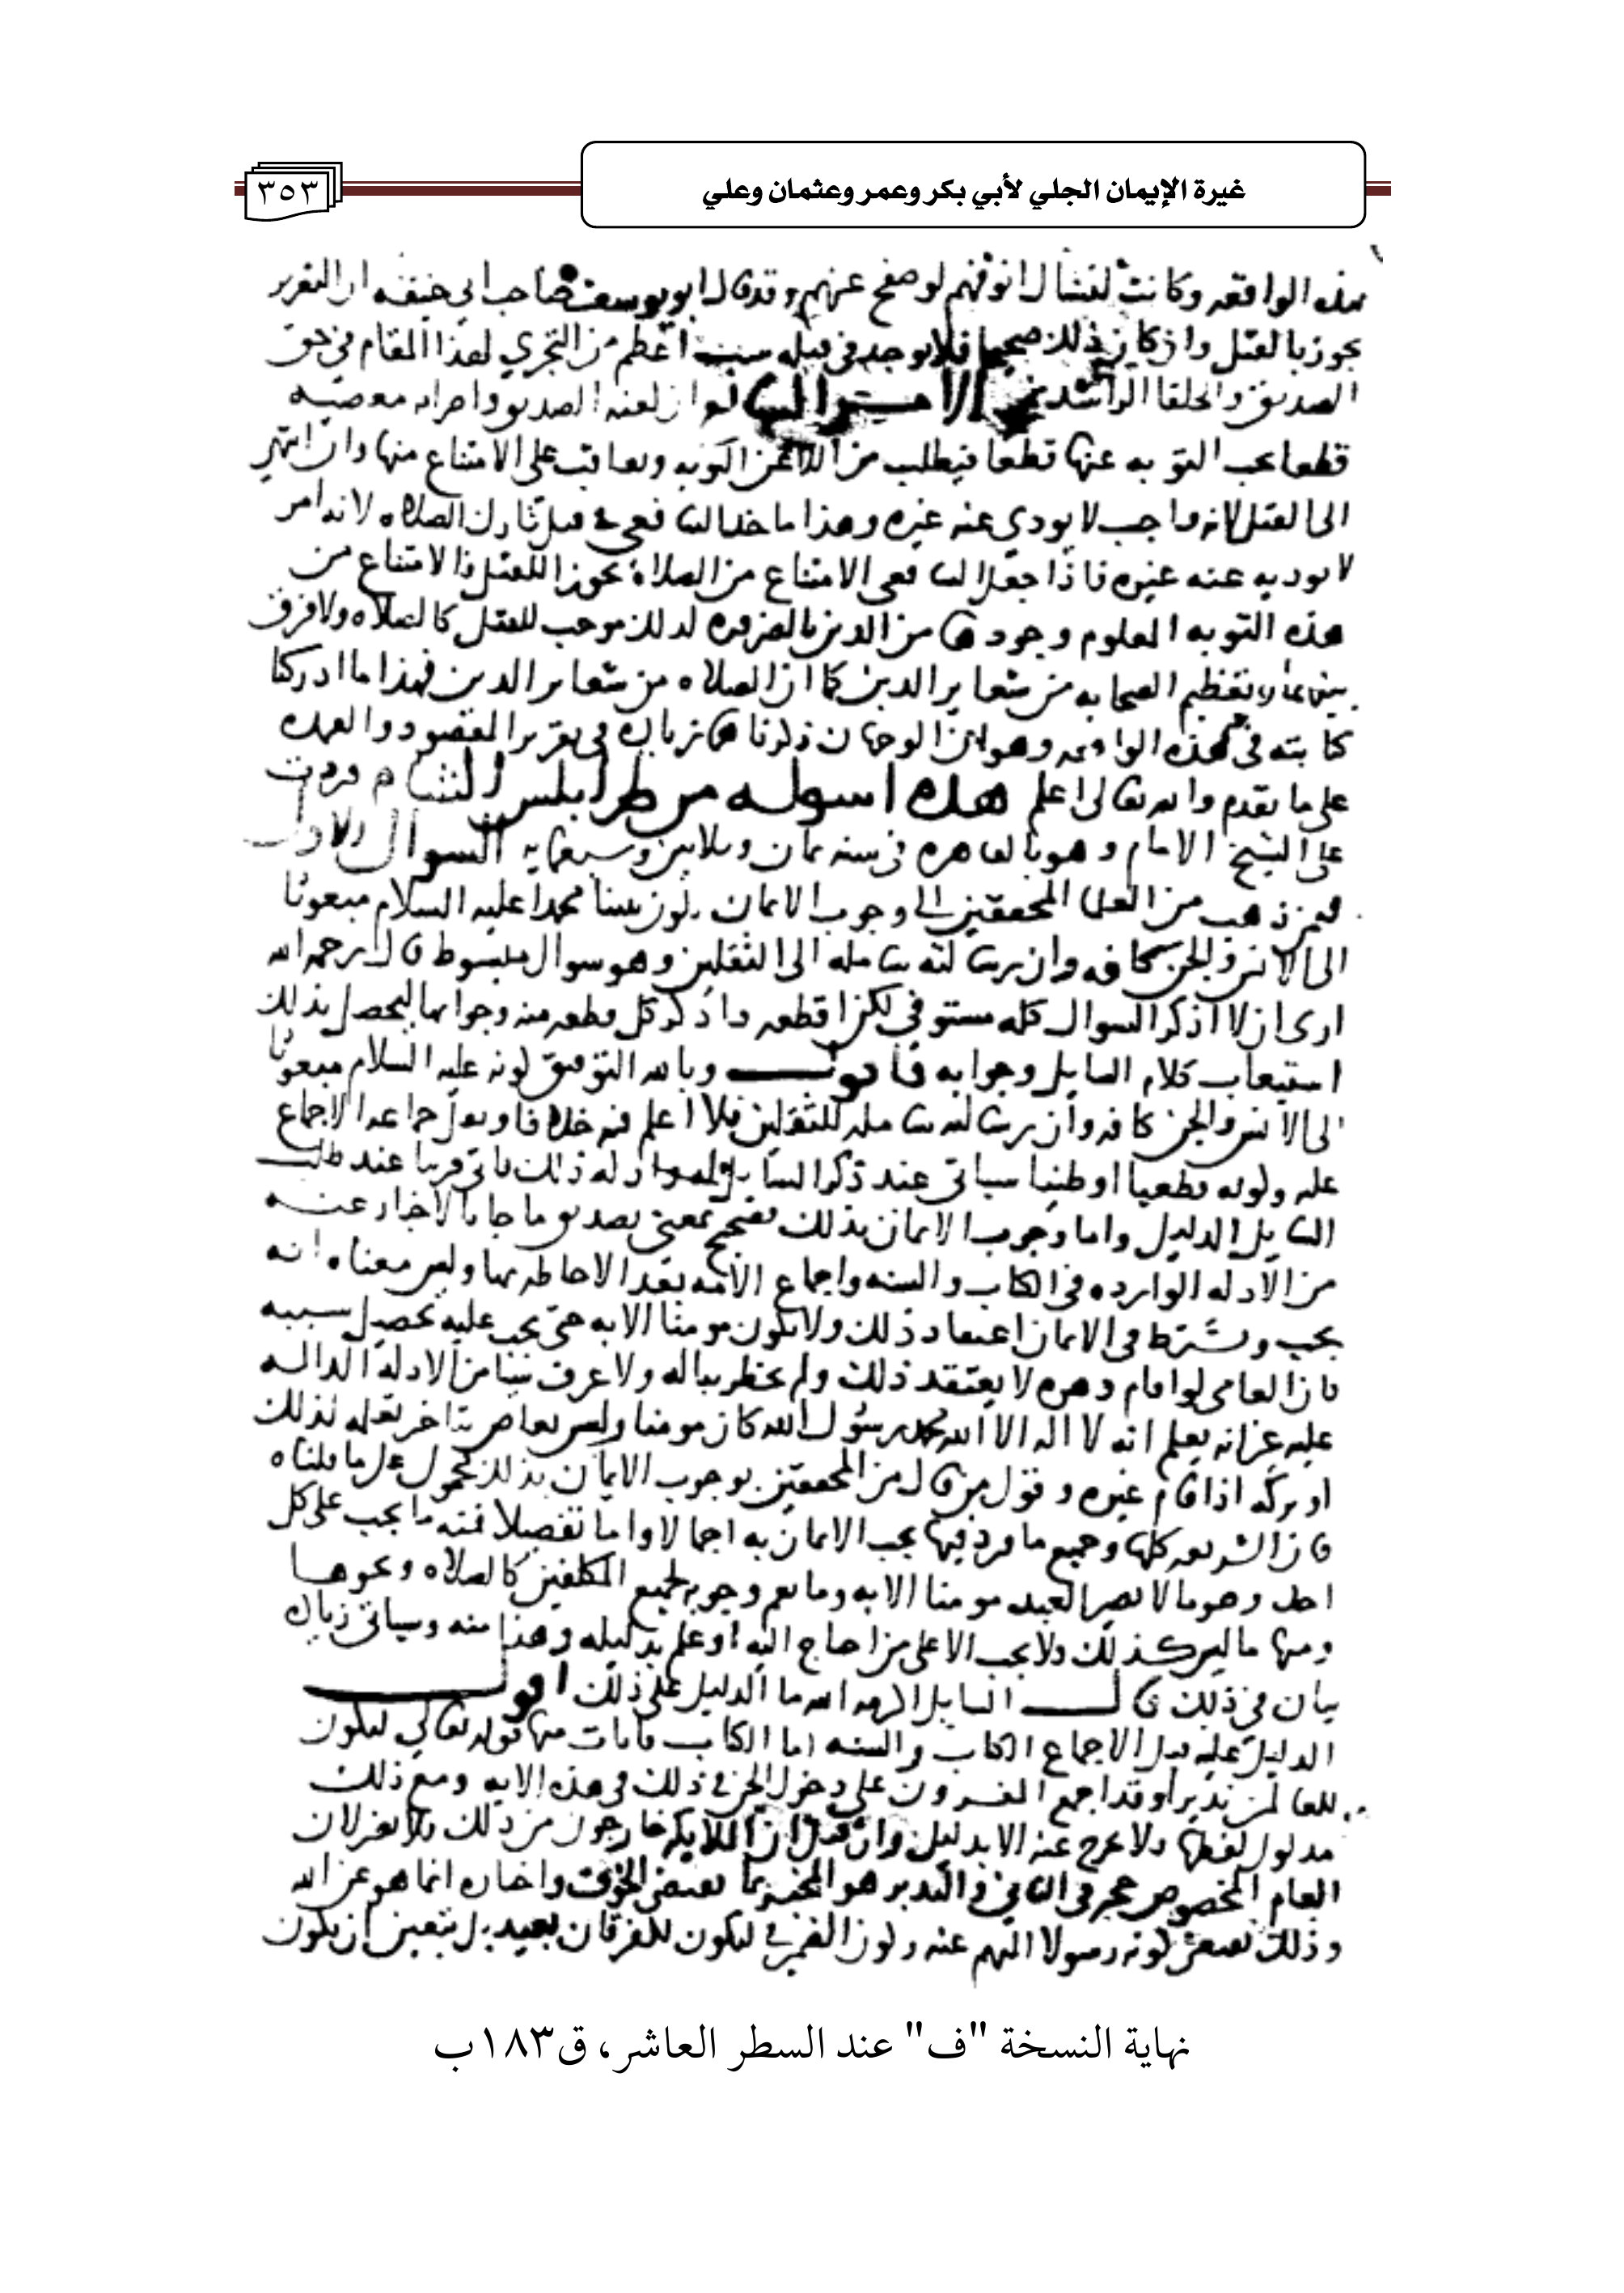 غيرة الإيمان الجلي لأبي بكر وعمر وعثمان وعلي
٣٥٣
هذه الواقعه وكانت لوصفح عنهم وقد قال ابو يوسف صاحب ابي حنيفه ان التعزير
يجوز بالقتل وان كان ذلك صحيحا فلا يوجد في قبله سبب اعظم من التجري لهذا المقام في حق
الصديق والخلفا الراشدين لعنه الصديق واحزابه معصيه
قطعا يجب التوبه عنها قطعا فيطلب من التوبه ويعاقب على الامتناع منها وان انتهى
الى القتل لانه واجب لا يودي عنه غيره وهذا ماخذ الشافعي في قتل تارك الصلاه لانه امر
لا يوديه عنه غيره فاذا جعل الشافعي الامتناع من الصلاة مجوزا للقتل فالامتناع من
هذه التوبه المعلوم وجوبها من الدين بالضروره كذلك موجب للقتل كالصلاه ولا فرق
بينهما لان تعظيم الصحابه من شعاير الدين كما ان الصلاه من شعاير الدين فهذا ما ادركنا
كتابته في هذه الواقعه وهذان الوجهان ذكرناهما زياده في تقرير المقصود والعمده
على ما تقدم والله تعالى اعلم هذه اسوله من طرابلس الشام وردت
على الشيخ الامام وهو بالقاهره في سنه ثمان وثلاثين وسبعمايه السوال الاول
فيمن ذهب من العلما المحققين الى وجوب الايمان بكون نبينا محمدا عليه السلام مبعوثا
الى الانس والجن كافه وان رسالته شامله الى الثقلين وهو سوال مبسوط قال رحمه الله
ارى ان لا اذكر السوال كله مستوفى لكن اقطعه واذكر كل قطعه منه وجوابها ليحصل بذلك
استيعاب كلام السايل وجوابه فاقول وبالله التوفيق كونه عليه السلام مبعوثا
الى الانس والجن كافه وان رسالته شامله للثقلين فلا اعلم فيه خلافا ونقل جماعه الاجماع
عليه وكونه قطعيا او ظنيا سياتي عند ذكر السايل له وادله ذلك تاتي قريبا عند طلب
السايل الدليل واما وجوب الايمان بذلك فصحيح بمعنى تصديق ما جا بالاخبار عنه
من الادله الوارده في الكتاب والسنه واجماع الامه بعد الاحاطه بها وليس معناه انه
يجب ويشترط في الايمان اعتقاد ذلك ولا يكون مومنا الا به حتى يجب عليه تحصيل سببه
فان العامي لو اقام دهره لا يعتقد ذلك ولم يخطر بباله ولا عرف شيا من الادله الداله
عليه غير انه يعلم انه لا اله الا الله محمد رسول الله كان مومنا وليس بعاص بتاخر تعلمه لذلك
او تركه اذا قام غيره وقول من قال من المحققين بوجوب الايمان بذلك محمول على ما قلناه
فان الشريعه كلها وجميع ما ورد فيها يجب الايمان به اجمالا واما تفصيلا فمنه ما يجب على كل
احد وهو ما لا يصير العبد مومنا الا به وما يعم وجوبه لجميع المكلفين كالصلاه ونحوها
ومنها ما ليس كذلك ولا يجب الا على من احتاج اليه او علم بدليله وهذا منه وسياتي زياده
بيان في ذلك قال السايل اكرمه الله ما الدليل على ذلك اقول
الدليل عليه قبل الاجماع الكتاب والسنه اما الكتاب فايات منها قوله تعالى ليكون
للعالمين نذيرا وقد اجمع المفسرون على دخول الجن في ذلك في هذه الايه ومع ذلك
مدلول لفظها ولا يخرج عنه الا بدليل وان قيل ان الملايكه خارجون من ذلك فلا يضر لان
العام المخصوص حجه في الباقي والنذير هو المخبر بما يقتضي الخوف واخباره انما هو عن الله
وذلك يقتضي كونه رسولا اليهم عنه وكون الضمير في ليكون للفرقان بعيد بل يتعين ان يكون
نهاية النسخة "ف" عند السطر العاشر، ق١٨٣ب